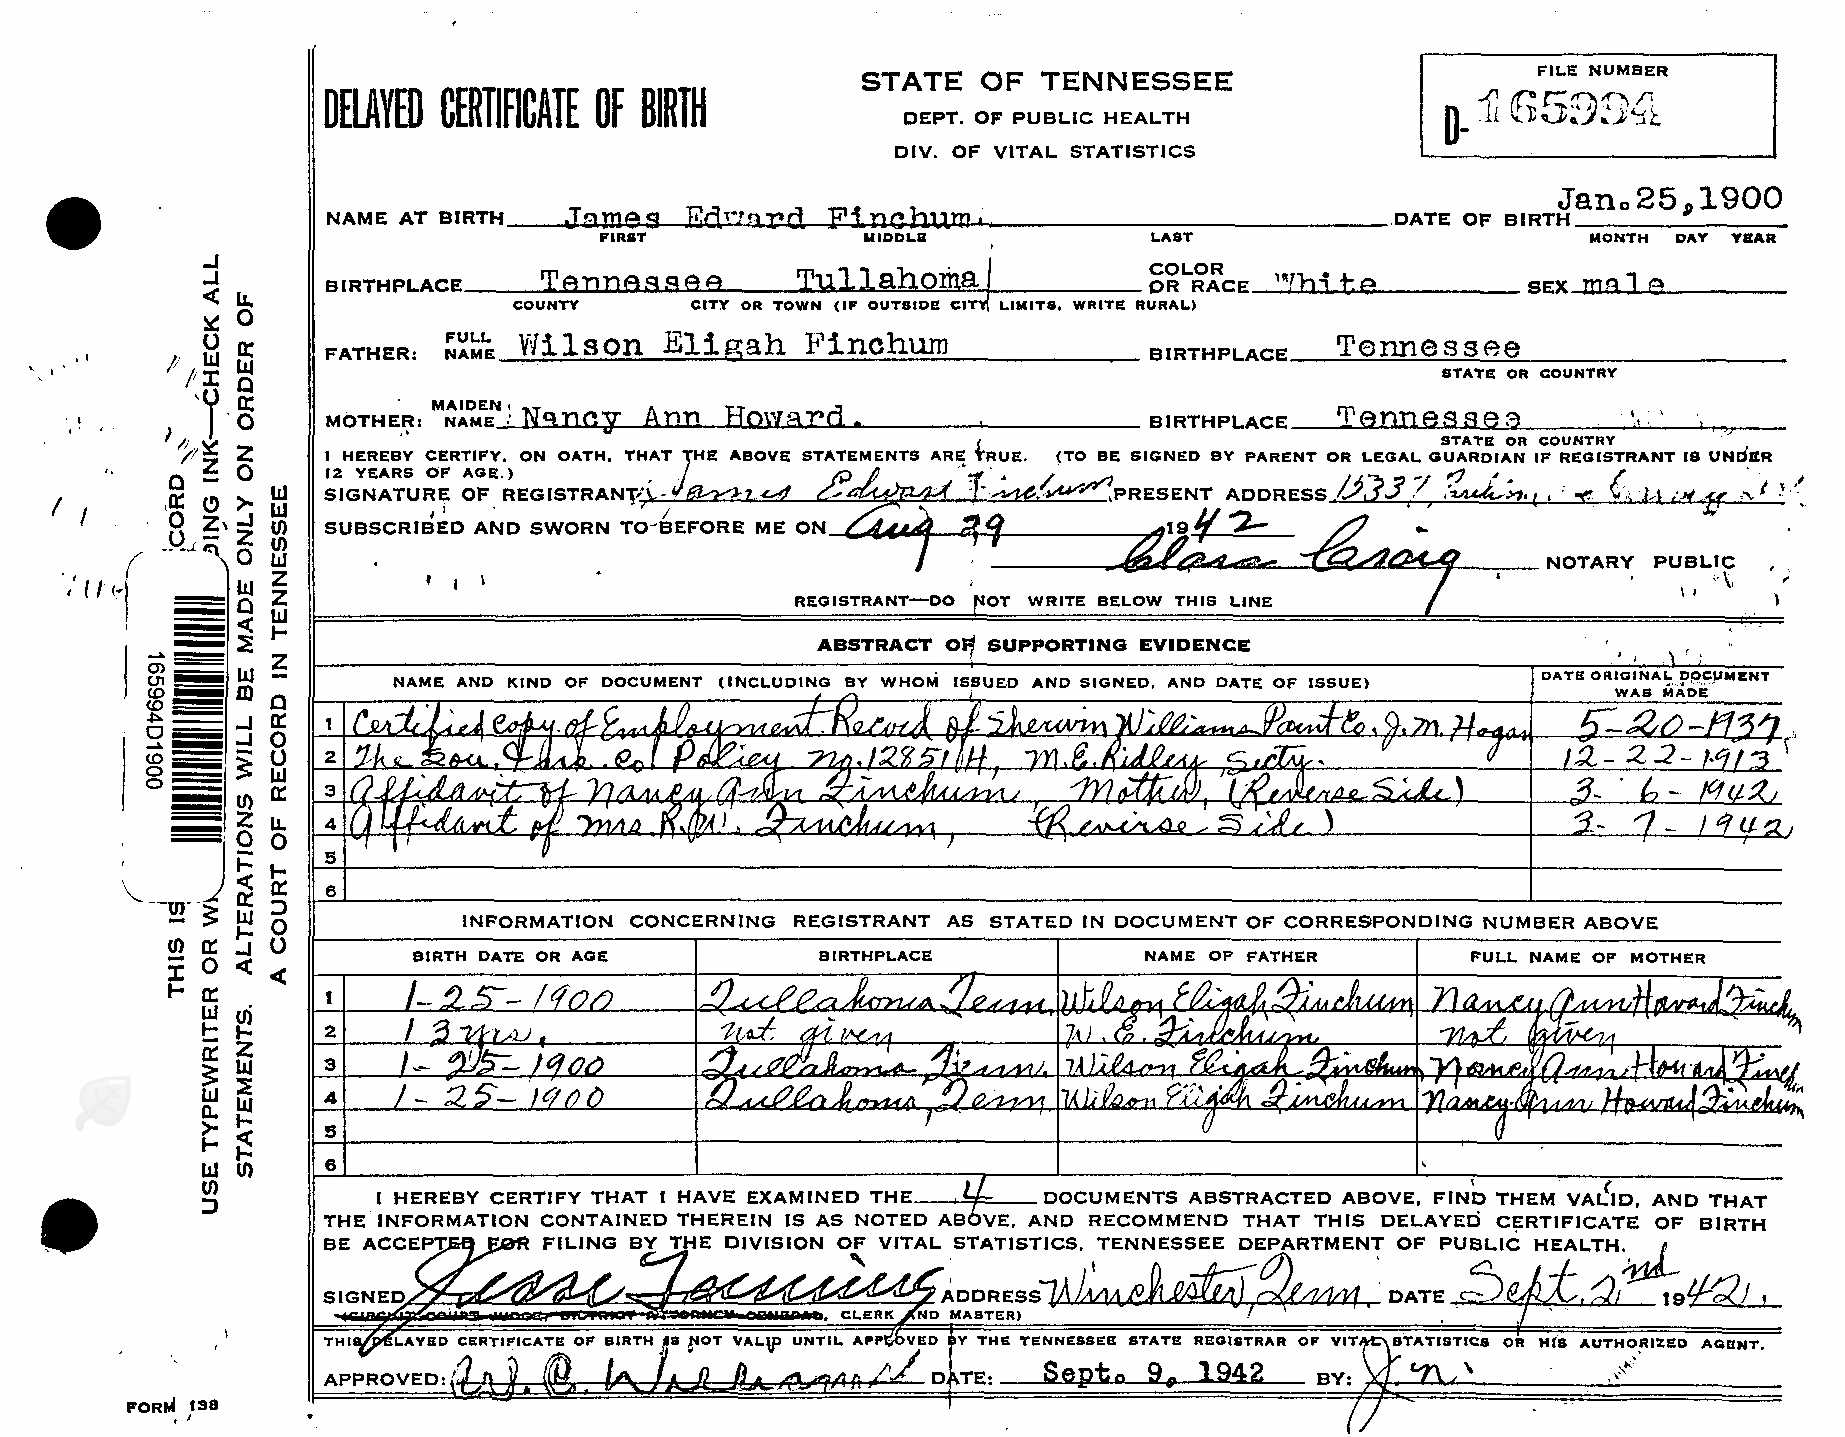 DELAYED CERTIFICATE OF BIRTH
STATE OF TENNESSEE
DEPT. OF PUBLIC HEALTH
DIV. OF VITAL STATISTICS
FILE NUMBER
D- 165994
NAME AT BIRTH James Edward Finchum. DATE OF BIRTH Jan. 25, 1900
FIRST MIDDLE LAST MONTH DAY YEAR
BIRTHPLACE Tennessee Tullahoma COLOR OR RACE White SEX male
COUNTY CITY OR TOWN (IF OUTSIDE CITY LIMITS, WRITE RURAL)
FATHER: FULL NAME Wilson Eligah Finchum BIRTHPLACE Tennessee
STATE OR COUNTRY
MOTHER: MAIDEN NAME Nancy Ann Howard. BIRTHPLACE Tennessee
STATE OR COUNTRY
I HEREBY CERTIFY, ON OATH, THAT THE ABOVE STATEMENTS ARE TRUE. (TO BE SIGNED BY PARENT OR LEGAL GUARDIAN IF REGISTRANT IS UNDER
12 YEARS OF AGE.)
SIGNATURE OF REGISTRANT: James Edward Finchum PRESENT ADDRESS 15337
SUBSCRIBED AND SWORN TO BEFORE ME ON Aug 29 1942
Clara Craig NOTARY PUBLIC
REGISTRANT—DO NOT WRITE BELOW THIS LINE
ABSTRACT OF SUPPORTING EVIDENCE
NAME AND KIND OF DOCUMENT (INCLUDING BY WHOM ISSUED AND SIGNED, AND DATE OF ISSUE) DATE ORIGINAL DOCUMENT WAS MADE
1 Certified copy of Employment Record of Sherwin Williams Paint Co. J. M. Hogan 5-20-1937
2 The Sou. & Co Policy no. 12851 H, M. E. Ridley Secty. 12-22-1913
3 Affidavit of Nancy Ann Finchum, Mother, (Reverse Side) 3-6-1942
4 Affidavit of Mrs. R. W. Finchum, (Reverse Side) 3-7-1942
5
6
INFORMATION CONCERNING REGISTRANT AS STATED IN DOCUMENT OF CORRESPONDING NUMBER ABOVE
BIRTH DATE OR AGE BIRTHPLACE NAME OF FATHER FULL NAME OF MOTHER
1 1-25-1900 Tullahoma Tenn. Wilson Eligah Finchum Nancy Ann Howard Finchum
2 13 yrs. not given W. E. Finchum not given
3 1-25-1900 Tullahoma, Tenn. Wilson Eligah Finchum Nancy Ann Howard Finchum
4 1-25-1900 Tullahoma, Tenn Wilson Eligah Finchum Nancy Ann Howard Finchum
5
6
I HEREBY CERTIFY THAT I HAVE EXAMINED THE 4 DOCUMENTS ABSTRACTED ABOVE, FIND THEM VALID, AND THAT
THE INFORMATION CONTAINED THEREIN IS AS NOTED ABOVE, AND RECOMMEND THAT THIS DELAYED CERTIFICATE OF BIRTH
BE ACCEPTED FOR FILING BY THE DIVISION OF VITAL STATISTICS, TENNESSEE DEPARTMENT OF PUBLIC HEALTH.
SIGNED ADDRESS Winchester, Tenn. DATE Sept. 2nd 1942.
CLERK AND MASTER)
THIS DELAYED CERTIFICATE OF BIRTH IS NOT VALID UNTIL APPROVED BY THE TENNESSEE STATE REGISTRAR OF VITAL STATISTICS OR HIS AUTHORIZED AGENT.
APPROVED: DATE: Sept. 9, 1942 BY: J. N.
FORM 138
THIS IS CORD
USE TYPEWRITER OR DING INK—CHECK ALL
STATEMENTS. ALTERATIONS WILL BE MADE ONLY ON ORDER OF
A COURT OF RECORD IN TENNESSEE
165994D1900